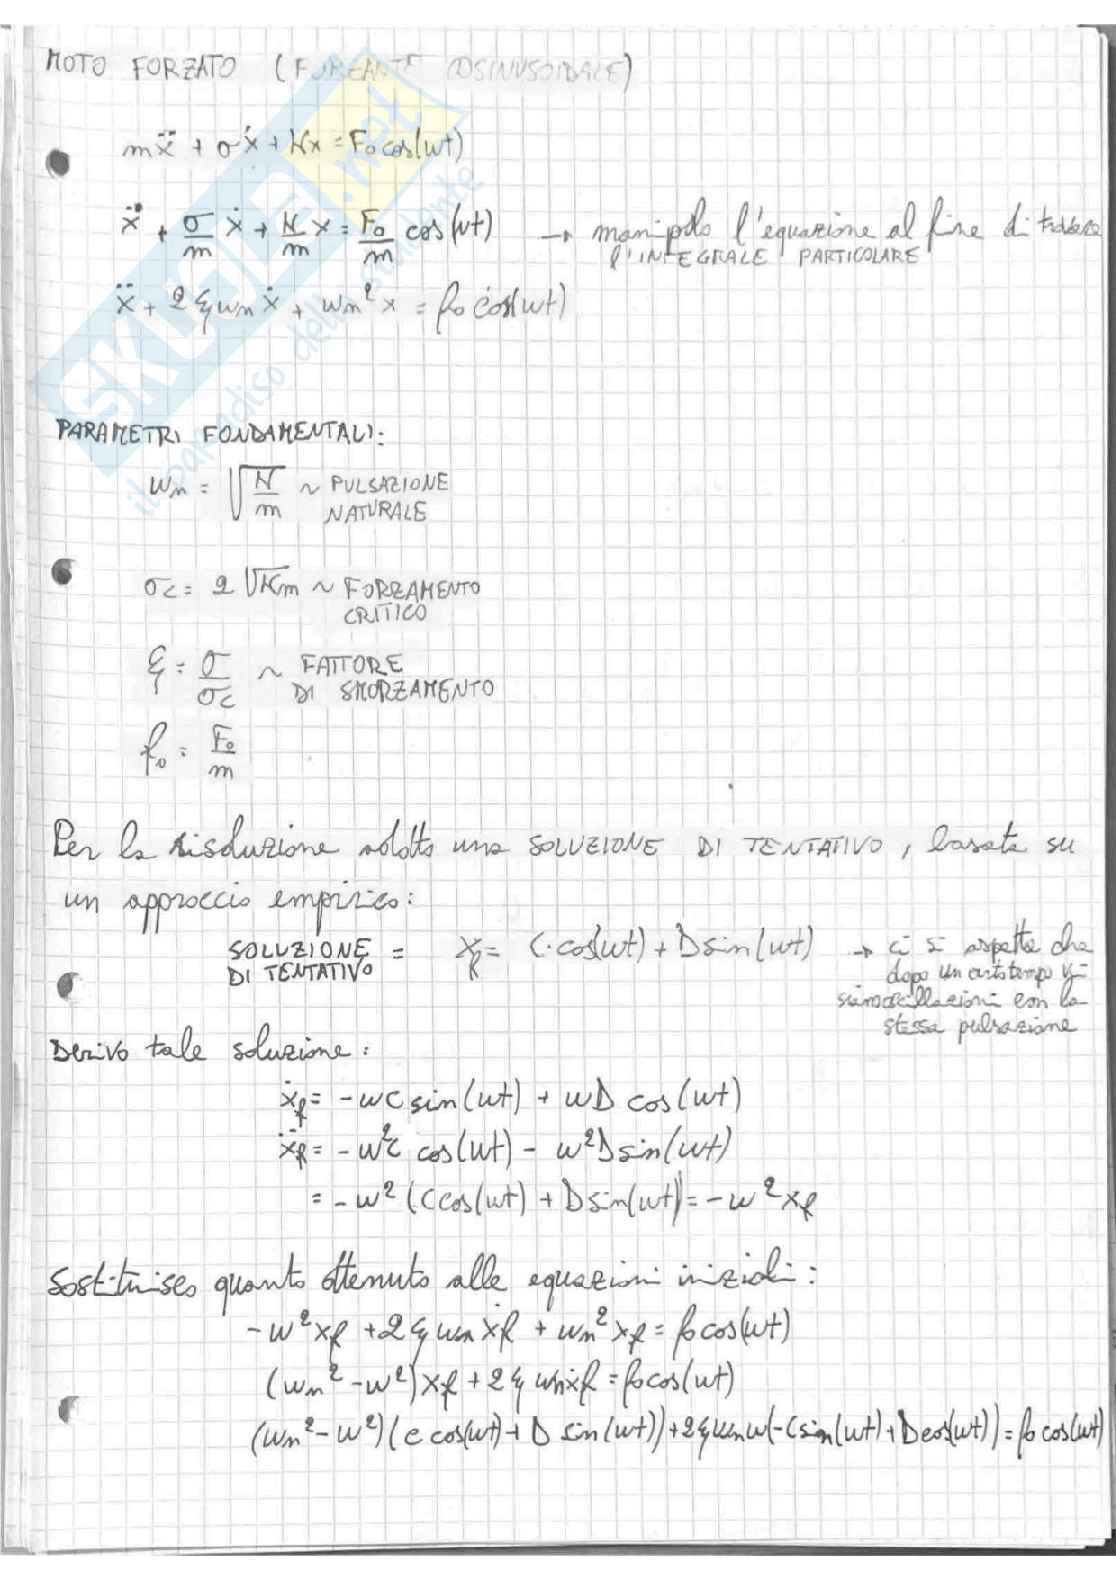 MOTO FORZATO (FORZANTE COSINUSOIDALE)
mẍ + σẋ + Kx = F₀cos(ωt)
ẍ + σ/m ẋ + K/m x = F₀/m cos(ωt) → manipolo l'equazione al fine di trovare
l'INTEGRALE PARTICOLARE
ẍ + 2ξωnẋ + ωn²x = f₀cos(ωt)
PARAMETRI FONDAMENTALI:
ωn = √(K/m) ~ PULSAZIONE
NATURALE
σc = 2√Km ~ FORZAMENTO
CRITICO
ξ = σ/σc ~ FATTORE
DI SMORZAMENTO
f₀ = F₀/m
Per la risoluzione adotto una SOLUZIONE DI TENTATIVO, basata su
un approccio empirico:
SOLUZIONE
DI TENTATIVO = xf = C·cos(ωt) + D sin(ωt) → ci si aspetta che
dopo un certo tempo vi
siano oscillazioni con la
stessa pulsazione
Derivo tale soluzione:
ẋf = -ωC sin(ωt) + ωD cos(ωt)
ẍf = -ω²C cos(ωt) - ω²D sin(ωt)
= -ω²(C cos(ωt) + D sin(ωt)) = -ω²xf
Sostituisco quanto ottenuto alle equazioni iniziali:
-ω²xf + 2ξωnẋf + ωn²xf = f₀cos(ωt)
(ωn²-ω²)xf + 2ξωnẋf = f₀cos(ωt)
(ωn²-ω²)(C cos(ωt) + D sin(ωt)) + 2ξωnω(-C sin(ωt) + D cos(ωt)) = f₀ cos(ωt)
SKUOLA.net
il paradiso dello studente